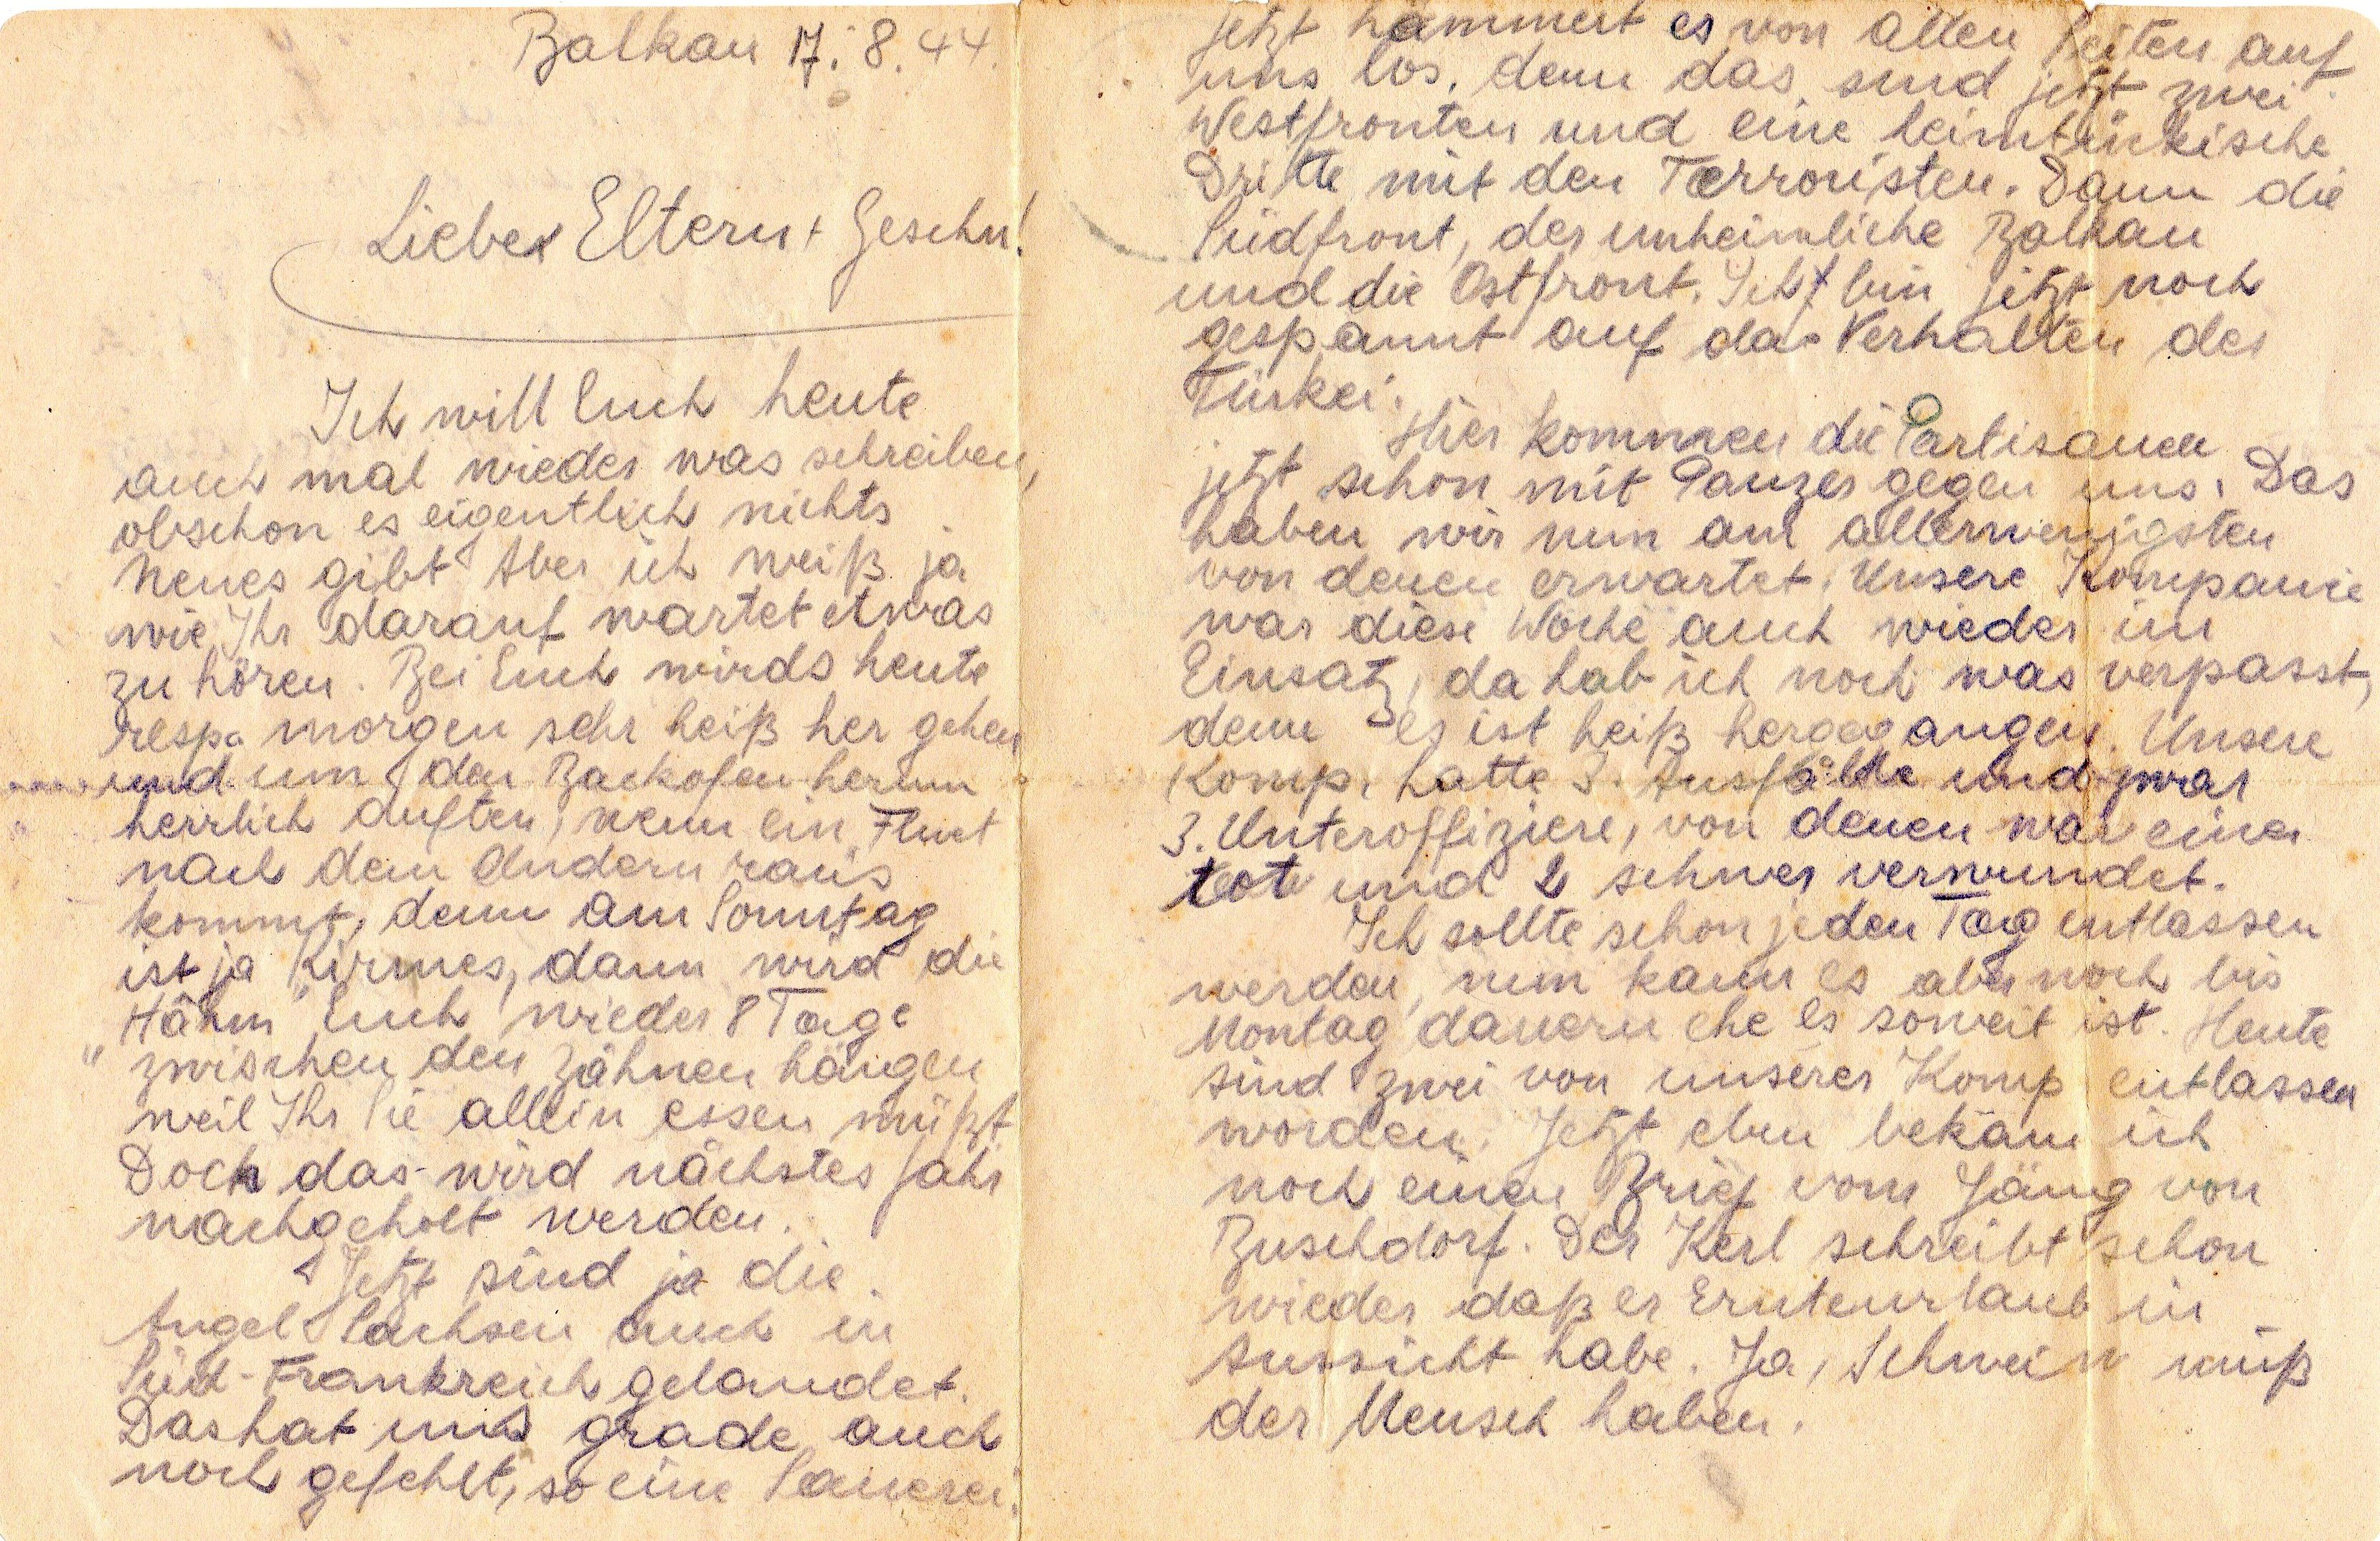 Balkan 17.8.44.
Liebe Eltern + Geschw!
Ich will Euch heute
auch mal wieder was schreiben,
obschon es eigentlich nichts
Neues gibt. Aber ich weiß ja
wie Ihr darauf wartet etwas
zu hören. Bei Euch wirds heute
resp. morgen sehr heiß her gehen
und um den Backofen herum
herrlich duften, wenn ein
nach dem Andern raus
kommt, denn am Sonntag
ist ja Kirmes, dann wird die
"Hähm" Euch wieder 8 Tage
zwischen den Zähnen hängen
weil Ihr Sie allein essen müßt
Doch das wird nächstes Jahr
nachgeholt werden.
Jetzt sind ja die
Angel Sachsen auch in
Süd-Frankreich gelandet.
Das hat uns grade auch
noch gefehlt, so eine Sauerei.
Jetzt hämmert es von allen Seiten auf
uns los, denn das sind jetzt zwei
Westfronten und eine heimtükische
Dritte mit den Terroristen. Dann die
Südfront, der unheimliche Balkan
und die Ostfront. Ich bin jetzt noch
gespannt auf das Verhalten der
Türkei.
Hier kommen die Partisanen
jetzt schon mit Panzer gegen uns. Das
haben wir nun am allerwenigsten
von denen erwartet. Unsere Kompanie
war diese Woche auch wieder im
Einsatz, da hab ich noch was verpasst,
denn es ist heiß hergegangen. Unsere
Komp. hatte 3. Ausfälle und zwar
3. Unteroffiziere, von denen war einer
tot und 2 schwer verwundet.
Ich sollte schon jeden Tag entlassen
werden, nun kann es aber noch bis
Montag dauern ehe es soweit ist. Heute
sind zwei von unserer Komp entlassen
worden. Jetzt eben bekam ich
noch einen Brief vom Jäng von
Buschdorf. Der Kerl schreibt schon
wieder daß er Ernteurlaub in
Aussicht habe. Ja, Schwein muß
der Mensch haben.